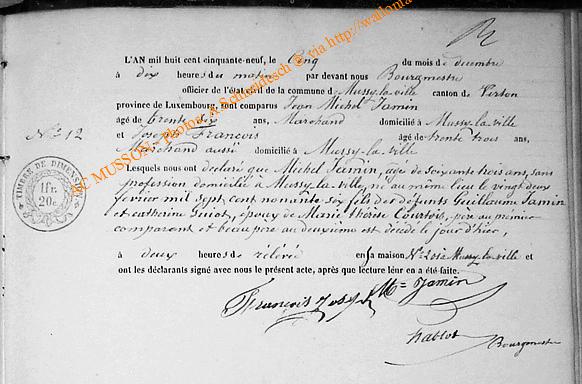 L'AN mil huit cent cinquante-neuf, le Cinq du mois de décembre
à dix heures du matin par devant nous Bourgmestre
officier de l'état civil de la commune d Mussy-la-ville canton de Virton
province de Luxembourg, sont comparus Jean Michel Jamin
âgé de trente six ans, Marchand domicilié à Mussy-la-ville
N° 12
et Joseph François âgé de trente trois ans,
Marchand aussi domicilié à Mussy-la-ville
Lesquels nous ont déclaré que Michel Jamin, age de soixante trois ans, sans
profession domicilié a Mussy-la-ville, né au même lieu le vingt deux
fevrier mil sept cent nonante six fils des défunts Guillaume Jamin
et catherine Guiot, époux de Marie thérèse Courtois, père au premier
comparant et beau père au deuxième est décédé le jour d'hier,
à deux heures de rélévé en sa maison N° 2 sis a Mussy-la-ville et
ont les déclarants signé avec nous le présent acte, après que lecture leur en a été faite.
TIMBRE DE DIMENSION
1fr.
20c.
François Joseph
M= Jamin
Bourgmestre
MUSSON - Photos A Schmidesch @ via http://wallonia